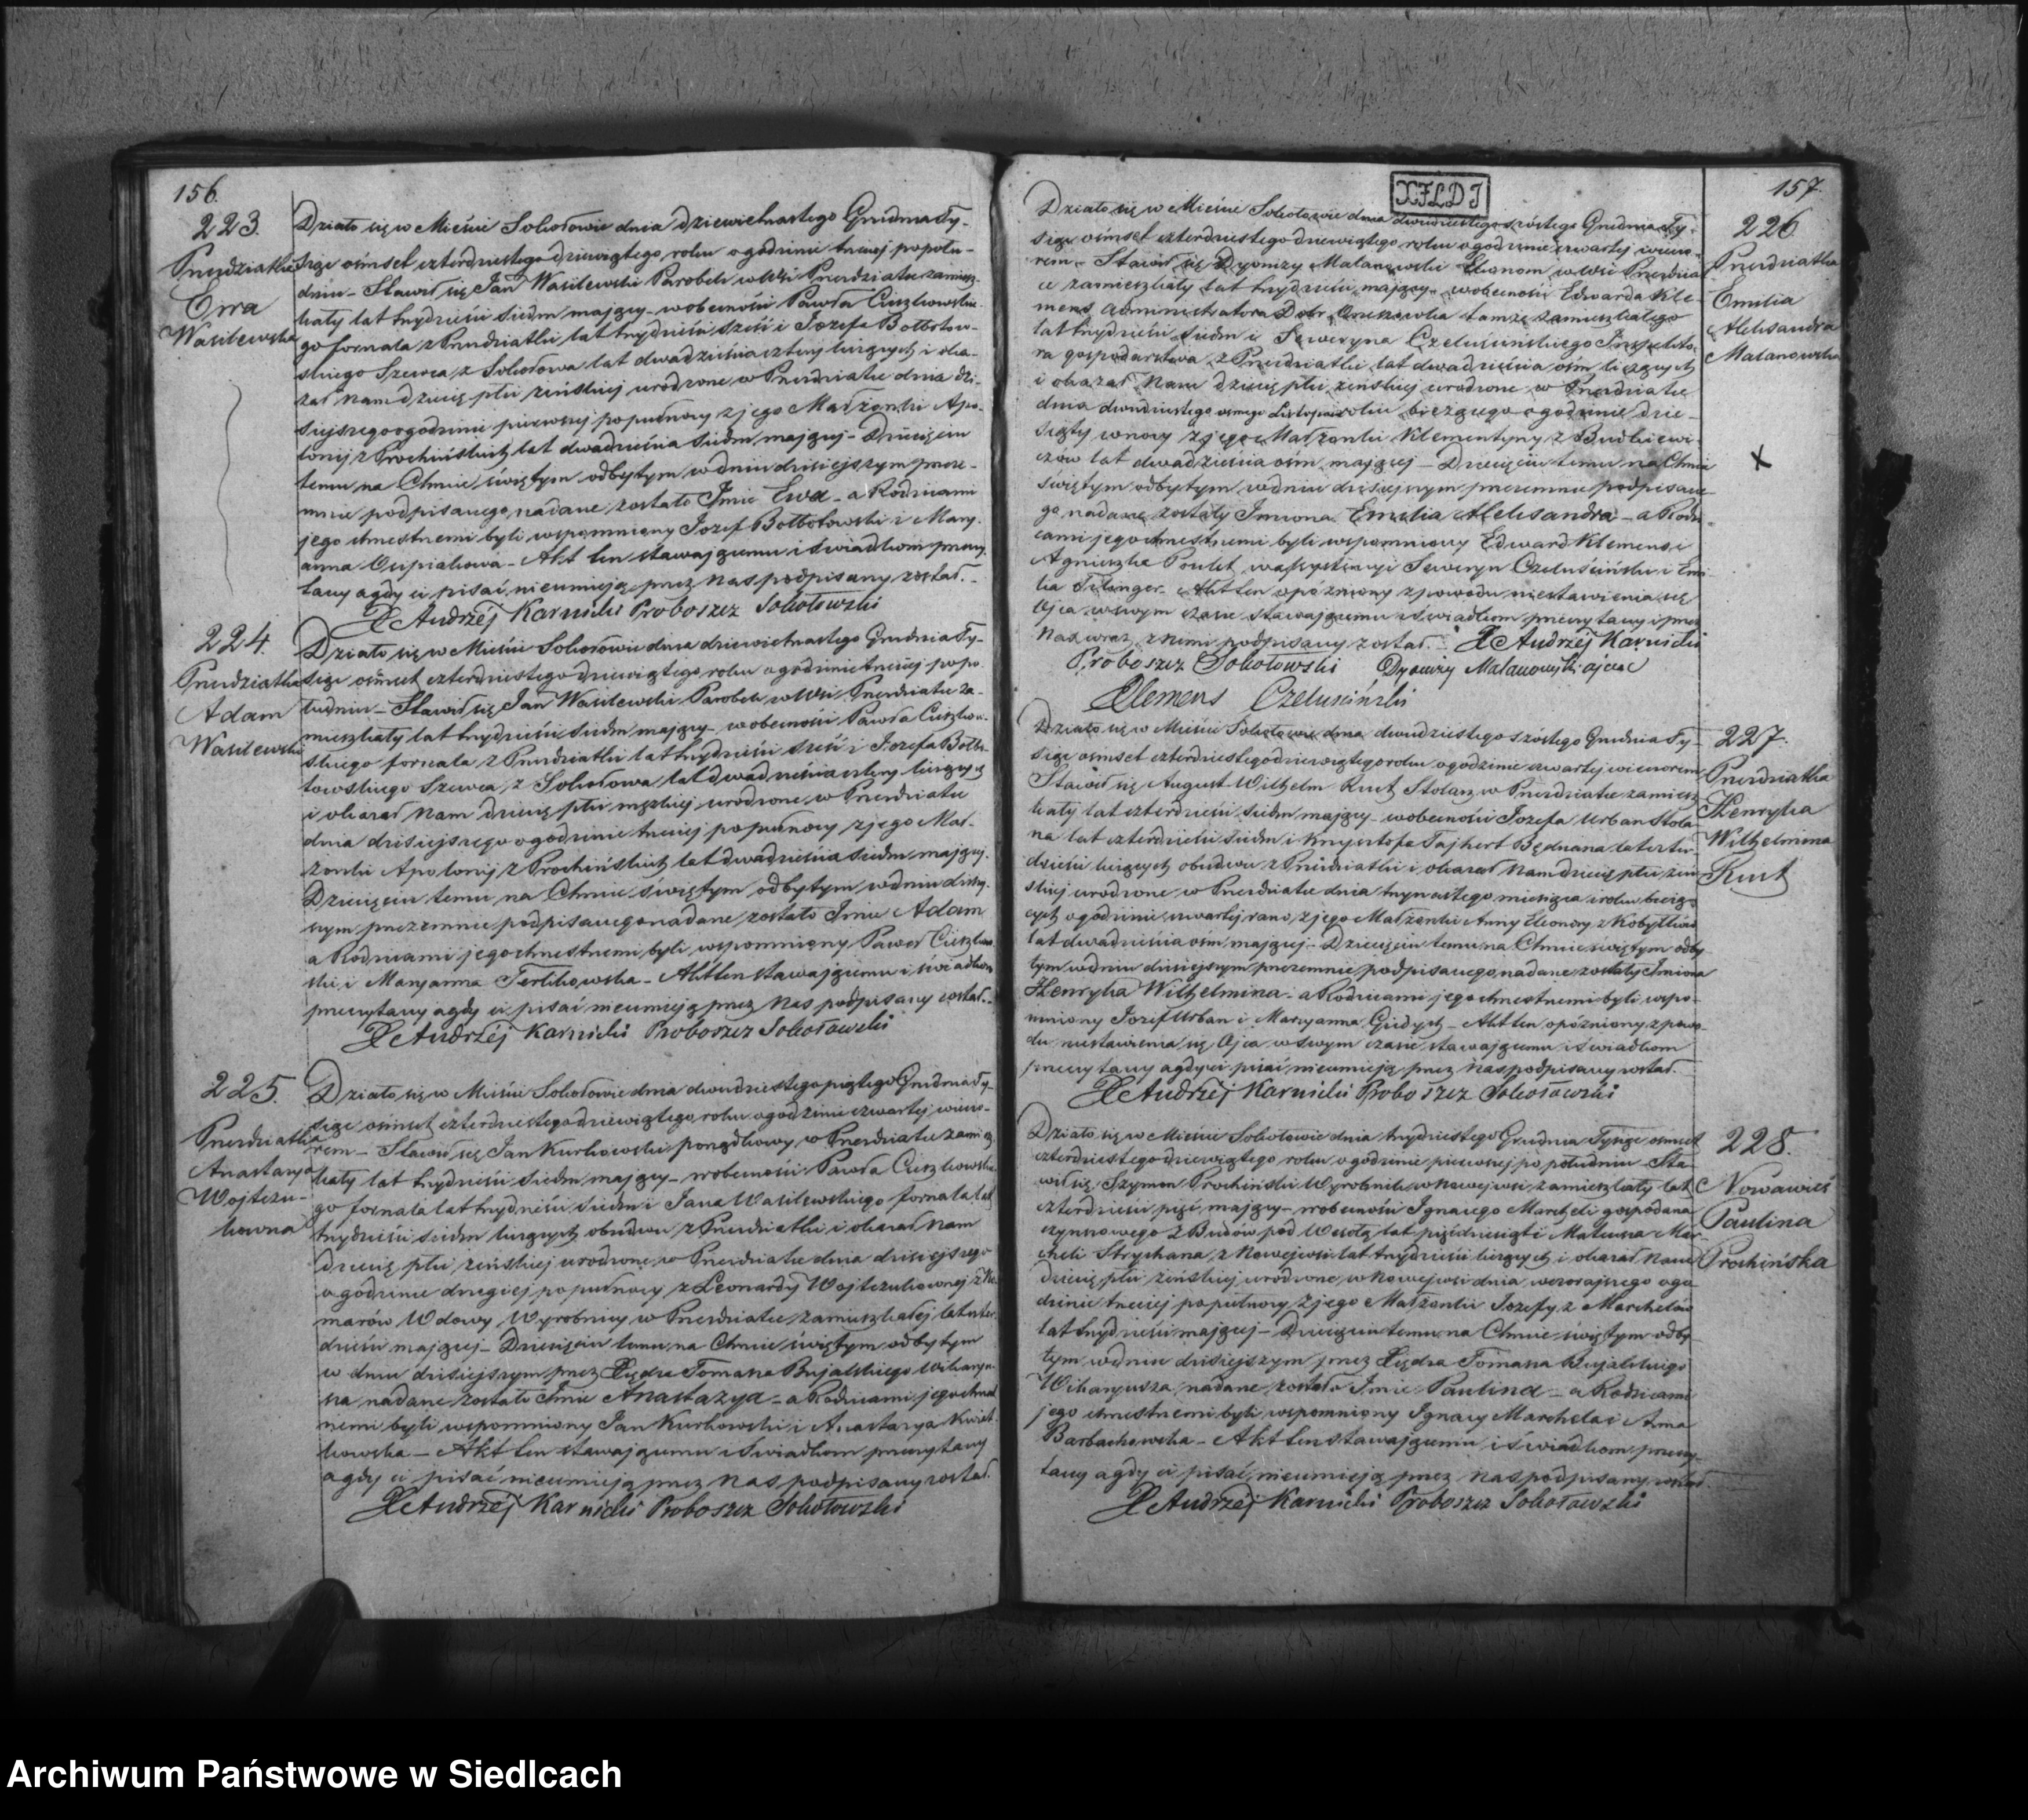 156.
223.
Przeździatka
Ewa
Wasilewska
Działo się w Mieście Sokołowie dnia dziewiętnastego Grudnia Ty-
siąc ośmset czterdziestego dziewiątego roku o godzinie trzeciej popołu-
dniu – Stawił się Jan Wasilewski Parobek w Wsi Przeździatce zamiesz-
kały lat trzydzieści siedm mający – w obecności Pawła
go fornala z Przeździatki lat trzydzieści sześć i Jozefa Bołbotow-
skiego Szewca z Sokołowa lat dwadzieścia cztery liczących i oka-
zał nam dziecię płci żeńskiej urodzone w Przeździatce dnia dzi-
siejszego o godzinie pierwszej popułnocy z jego Małżonki Apo-
lonij z Prochińskich lat dwadzieścia siedm mającej – Dziecięciu
temu na Chrzcie świętym odbytym w dniu dzisiejszym przeze-
mnie podpisanego nadane zostało Imie Ewa – a Rodzicami
jego chrzestnemi byli wspomniony Jozef Bołbotowski i Mary-
anna Osipiakowa – Akt ten stawającemu i świadkom przeczy-
tany a gdy ci pisać nieumieją przez Nas podpisany został. –
X Andrzej Karnicki Proboszcz Sokołowski
224.
Przeździatka
Adam
Wasilewski
Działo się w Mieście Sokołowie dnia dziewiętnastego Grudnia Ty-
siąc ośmset czterdziestego dziewiątego roku o godzinie trzeciej popo-
łudniu – Stawił się Jan Wasilewski Parobek w Wsi Przeździatce za-
mieszkały lat trzydzieści siedm mający – w obecności Pawła
skiego fornala z Przeździatki lat trzydzieści sześć i Jozefa Bołbo-
towskiego Szewca z Sokołowa lat dwadzieścia cztery liczących
i okazał Nam dziecię płci męzkiej urodzone w Przeździatce
dnia dzisiejszego o godzinie trzeciej popułnocy z jego Mał-
żonki Apolonij z Prochińskich lat dwadzieścia siedm mającej.
Dziecięciu temu na Chrzcie świętym odbytym w dniu dzisiej-
szym przezemnie podpisanego nadane zostało Imie Adam
a Rodzicami jego chrzestnemi byli wspomniony Paweł
ski i Maryanna Terlikowska – Akt ten stawającemu i świadkom
przeczytany a gdy ci pisać nieumieją przez Nas podpisany został. –
X Andrzej Karnicki Proboszcz Sokołowski
225.
Przeździatka
Anastazya
Wojteczu-
kowna
Działo się w Mieście Sokołowie dnia dwudziestego piątego Grudnia Ty-
siąc ośmset czterdziestego dziewiątego roku o godzinie czwartej wieczo-
rem – Stawił się Jan Kurkowski porządkowy w Przeździatce zamiesz-
kały lat trzydzieści siedm mający – w obecności Pawła
go fornala lat trzydzieści siedm i Jana Wasilewskiego fornala lat
trzydzieści siedm liczących obudwu z Przeździatki i okazał Nam
Dziecię płci żeńskiej urodzone w Przeździatce dnia dzisiejszego
o godzinie drugiej popułnocy z Leonardy Wojteczukownej z
marów Wdowy Wyrobnicy w Przeździatce zamieszkałej lat czter-
dzieści mającej – Dziecięciu temu na Chrzcie świętym odbytym
w dniu dzisiejszym przez Xiędza Tomasza Bujalskiego Wikaryu-
sza nadane zostało Imie Anastazya – a Rodzicami jego chrzest-
nemi byli wspomniony Jan Kurkowski i Anastazya
kowska – Akt ten stawającemu i świadkom przeczytany
a gdy ci pisać nieumieją przez Nas podpisany został.
X Andrzej Karnicki Proboszcz Sokołowski
XFLDJ
157.
226
Przeździatka
Emilia
Aleksandra
Malanowska
X
Działo się w Mieście Sokołowie dnia dwudziestego szóstego Grudnia Ty-
siąc ośmset czterdziestego dziewiątego roku o godzinie czwartej wieczo-
rem – Stawił się Dyonizy Malanowski Ekonom w Wsi Przeździat-
ce zamieszkały lat trzydzieści mający – w obecności Edwarda Kle-
mens Administratora Dobr tamże zamieszkałego
lat trzydzieści siedm i Seweryna Czeluścińskiego Inspekto-
ra gospodarstwa z Przeździatki lat dwadzieścia ośm liczących
i okazał Nam dziecię płci żeńskiej urodzone w Przeździatce
dnia dwudziestego osmego Listopada roku bieżącego o godzinie dzie-
siąty wnocy z jego Małżonki Klementyny z Budkiewi-
czow lat dwadzieścia ośm mającej – Dziecięciu temu na Chrzcie
świętym odbytym w dniu dzisiejszym przezemnie podpisane-
go nadane zostały Imiona Emilia Aleksandra – a Rodzi-
cami jego chrzestnemi byli wspomniony Edward Klemens i
Agnieszka w assystencyi Seweryn Czeluściński i Emi-
lia – Akt ten opóźniony z powodu niestawienia się
Ojca w swym czasie stawającemu i świadkom przeczytany i przez
Nas wraz z nimi podpisany został. – X Andrzej Karnicki
Proboszcz Sokołowski Dyonizy Malanowski ojciec
Klemens Czeluściński
227.
Przeździatka
Henryka
Wilhelmina
Kurt
Działo się w Mieście Sokołowie dnia dwudziestego szóstego Grudnia Ty-
siąc ośmset czterdziestego dziewiątego roku o godzinie czwartej wieczorem
Stawił się August Wilhelm Kurt Stolarz w Przeździatce zamiesz-
kały lat czterdzieści siedm mający – w obecności Jozefa Urban Stola-
rza lat czterdzieści siedm i Krysztofa Tajhert Bednarza lat czter-
dzieści liczących obudwu z Przeździatki i okazał Nam dziecię płci żeń-
skiej urodzone w Przeździatce dnia trzynastego miesiąca i roku bieżą-
cych o godzinie czwartej rano z jego Małżonki Anny Eleonory z
lat dwadzieścia ośm mającej – Dziecięciu temu na Chrzcie świętym odby-
tym w dniu dzisiejszym przezemnie podpisanego nadane zostały Imiona
Henryka Wilhelmina – a Rodzicami jego chrzestnemi byli wspo-
mniony Jozef Urban i Maryanna – Akt ten opóźniony z powo-
du niestawienia się Ojca w swym czasie stawającemu i świadkom
przeczytany a gdy ci pisać nieumieją przez Nas podpisany został.
X Andrzej Karnicki Proboszcz Sokołowski
228.
Nowawieś
Paulina
Prochińska
Działo się w Mieście Sokołowie dnia trzydziestego Grudnia Tysiąc ośmset
czterdziestego dziewiątego roku o godzinie pierwszej po południu – Sta-
wił się Szymon Prochiński Wyrobnik w Nowejwsi zamieszkały lat
czterdzieści pięć mający – w obecności Ignacego Marcheli gospodarza
czynszowego z Budów pod Wesołą lat pięćdziesiąt i Mateusza Mar-
cheli Strycharza z Nowejwsi lat trzydzieści liczących i okazał Nam
Dziecię płci żeńskiej urodzone w Nowejwsi dnia wczorajszego o go-
dzinie trzeciej popułnocy z jego Małżonki Jozefy z Marchelów
lat trzydzieści mającej – Dziecięciu temu na Chrzcie świętym odby-
tym w dniu dzisiejszym przez Xiędza Tomasza Bujalskiego
Wikaryusza nadane zostało Imie Paulina – a Rodzicami
jego chrzestnemi byli wspomniony Ignacy Marchela i Anna
Barbachowska – Akt ten stawającemu i świadkom przeczy-
tany a gdy ci pisać nieumieją przez Nas podpisany został.
X Andrzej Karnicki Proboszcz Sokołowski
Archiwum Państwowe w Siedlcach